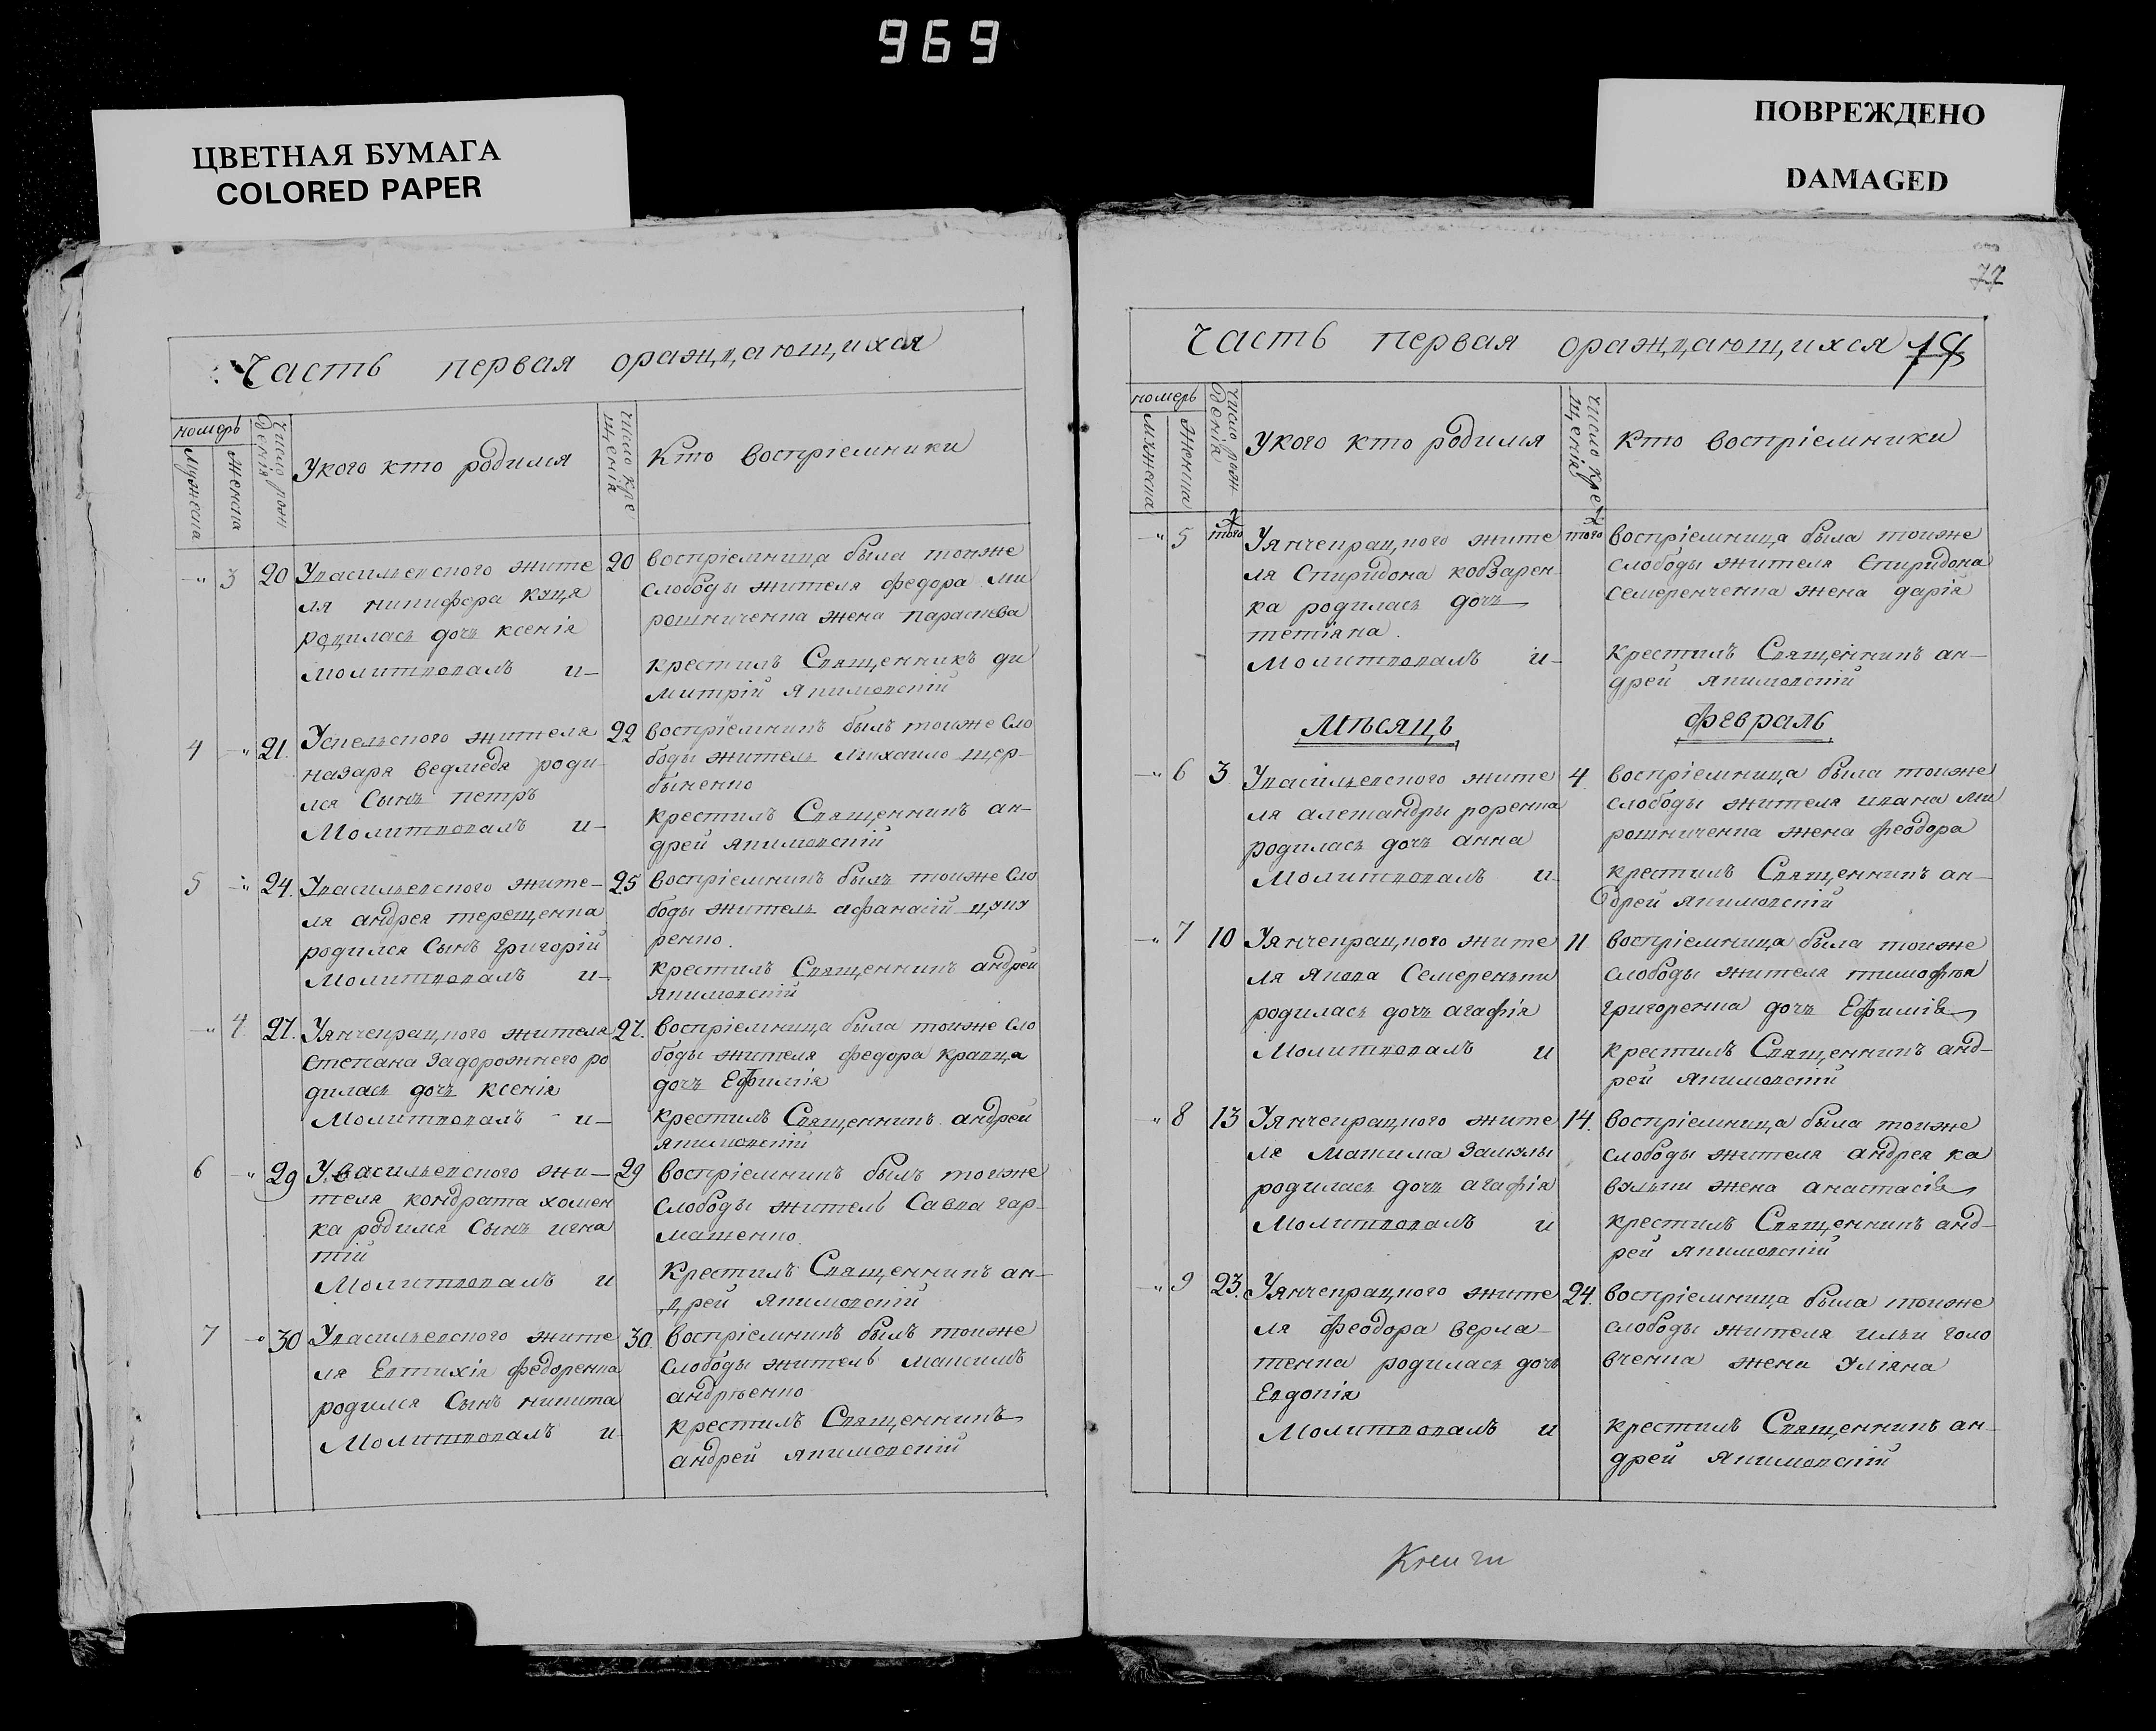 969
ЦВЕТНАЯ БУМАГА
COLORED PAPER
ПОВРЕЖДЕНО
DAMAGED
77
Часть первая ораждающихся
номеръ
мужеска
женска
Число рож
денія
Укого кто родился
число кре
щенія
Кто воспріемники
-" 3 20 Увасилевского жите
ля никифора куця
родилась дочь ксенія
Молитвовалъ и-
20 воспріемница была тоиже
слободы жителя федора ми
рошниченка жена параскева
крестилъ Священникъ ди
митрій якимовскій
4 -" 21. жителя
назара ведмедя роди
лся Сынъ петръ
Молитвовалъ и-
22 воспріемникъ былъ тоиже сло
боды житель михаило щер-
быненко
крестилъ Священникъ ан-
дрей якимовскій
5 -" 24. Увасилевского жите-
ля андрея терещенка
родился Сынъ григорій
Молитвовалъ и-
25 воспріемникъ былъ тоиже сло
боды житель афанасій
ренко.
крестилъ Священникъ андрей
якимовскій
-" 4 27. Уянчекрацкого жителя
Степана Задорожнего ро
дилась дочь ксенія
Молитвовалъ и-
27. воспріемница была тоиже сло
боды жителя федора кравца
дочь Ефимія
крестилъ Священникъ андрей
якимовскій
6 -" 29 Увасилевского жи-
теля кондрата хомен
ка родился Сынъ игна
тій
Молитвовалъ и
29 воспріемникъ былъ тоиже
слободы житель Савва гар-
машенко.
крестилъ Священникъ ан-
дрей якимовскій
7 -" 30 Увасилевского жите
ля Евтихія федоренка
родился Сынъ никита
Молитвовалъ и
30. воспріемникъ былъ тоиже
слободы житель максимъ
андрѣенко
крестилъ Священникъ
андрей якимовскій
Часть первая ораждающихся
номеръ
мужеска
женска
число рож-
денія
Укого кто родился
число кре
щенія
кто воспріемники
-" 5 того Уянчекрацкого жите
ля Спиридона кобзарен-
ка родилась дочь
тетіяна.
Молитвовалъ и-
того воспріемница была тоиже
слободы жителя Спиридона
семеренченка жена дарія
крестилъ Священникъ ан-
дрей якимовскій
Мѣсяцъ февраль
-" 6 3 Увасилевского жите
ля алетандры
родилась дочь анна
Молитвовалъ и
4. воспріемница была тоиже
слободы жителя ивана ми
рошниченка жена феодора
крестилъ Священникъ ан-
дрей якимовскій
-" 7 10 Уянчекрацкого жите
ля якова Семереньки
родилась дочь агафія
Молитвовалъ и
11 воспріемница была тоиже
слободы жителя тимофѣя
григоренка дочь Ефимія
крестилъ Священникъ анд-
рей якимовскій
-" 8 13 Уянчекрацкого жите
ля Матима Замулы
родилась дочь агафія
Молитвовалъ и
14. воспріемница была тоиже
слободы жителя андрея ка
вульки жена анастасія
крестилъ Священникъ анд-
рей якимовскій
-" 9 23. Уянчекрацкого жите
ля феодора верма-
тенка родилась дочь
Евдокія
Молитвовалъ и
24. воспріемница была тоиже
слободы жителя ильи голо
вченка жена уліяна
крестилъ Священникъ ан-
дрей якимовскій